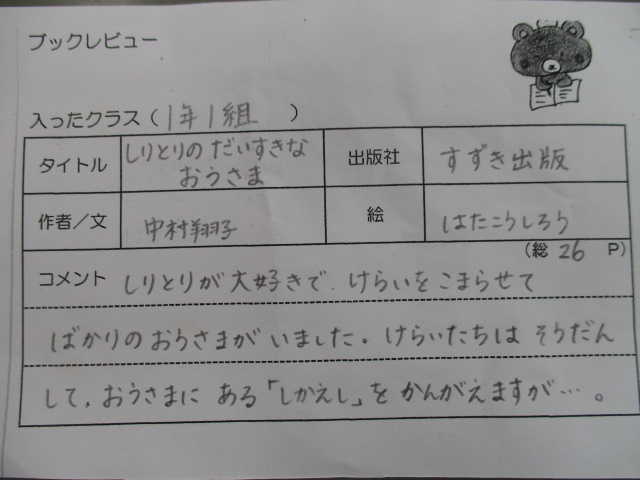 ブックレビュー
入ったクラス（1年1組　）
タイトル しりとりの だいすきな おうさま 出版社 すずき出版
作者／文 中村翔子 絵 はたこうしろう
（総 26 P）
コメント しりとりが大好きで、けらいをこまらせて
ばかりのおうさまがいました。けらいたちは そうだん
して、おうさまに ある「しかえし」を かんがえますが…。